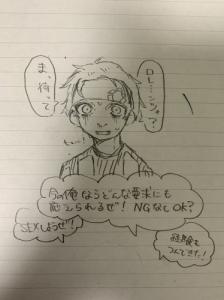 ロレ…シジャ…?
ま、待って
今の俺ならどんな要求にも
応えられるぜ！NGなしOK？
SEXしようぜ！
経験も
つんできた！